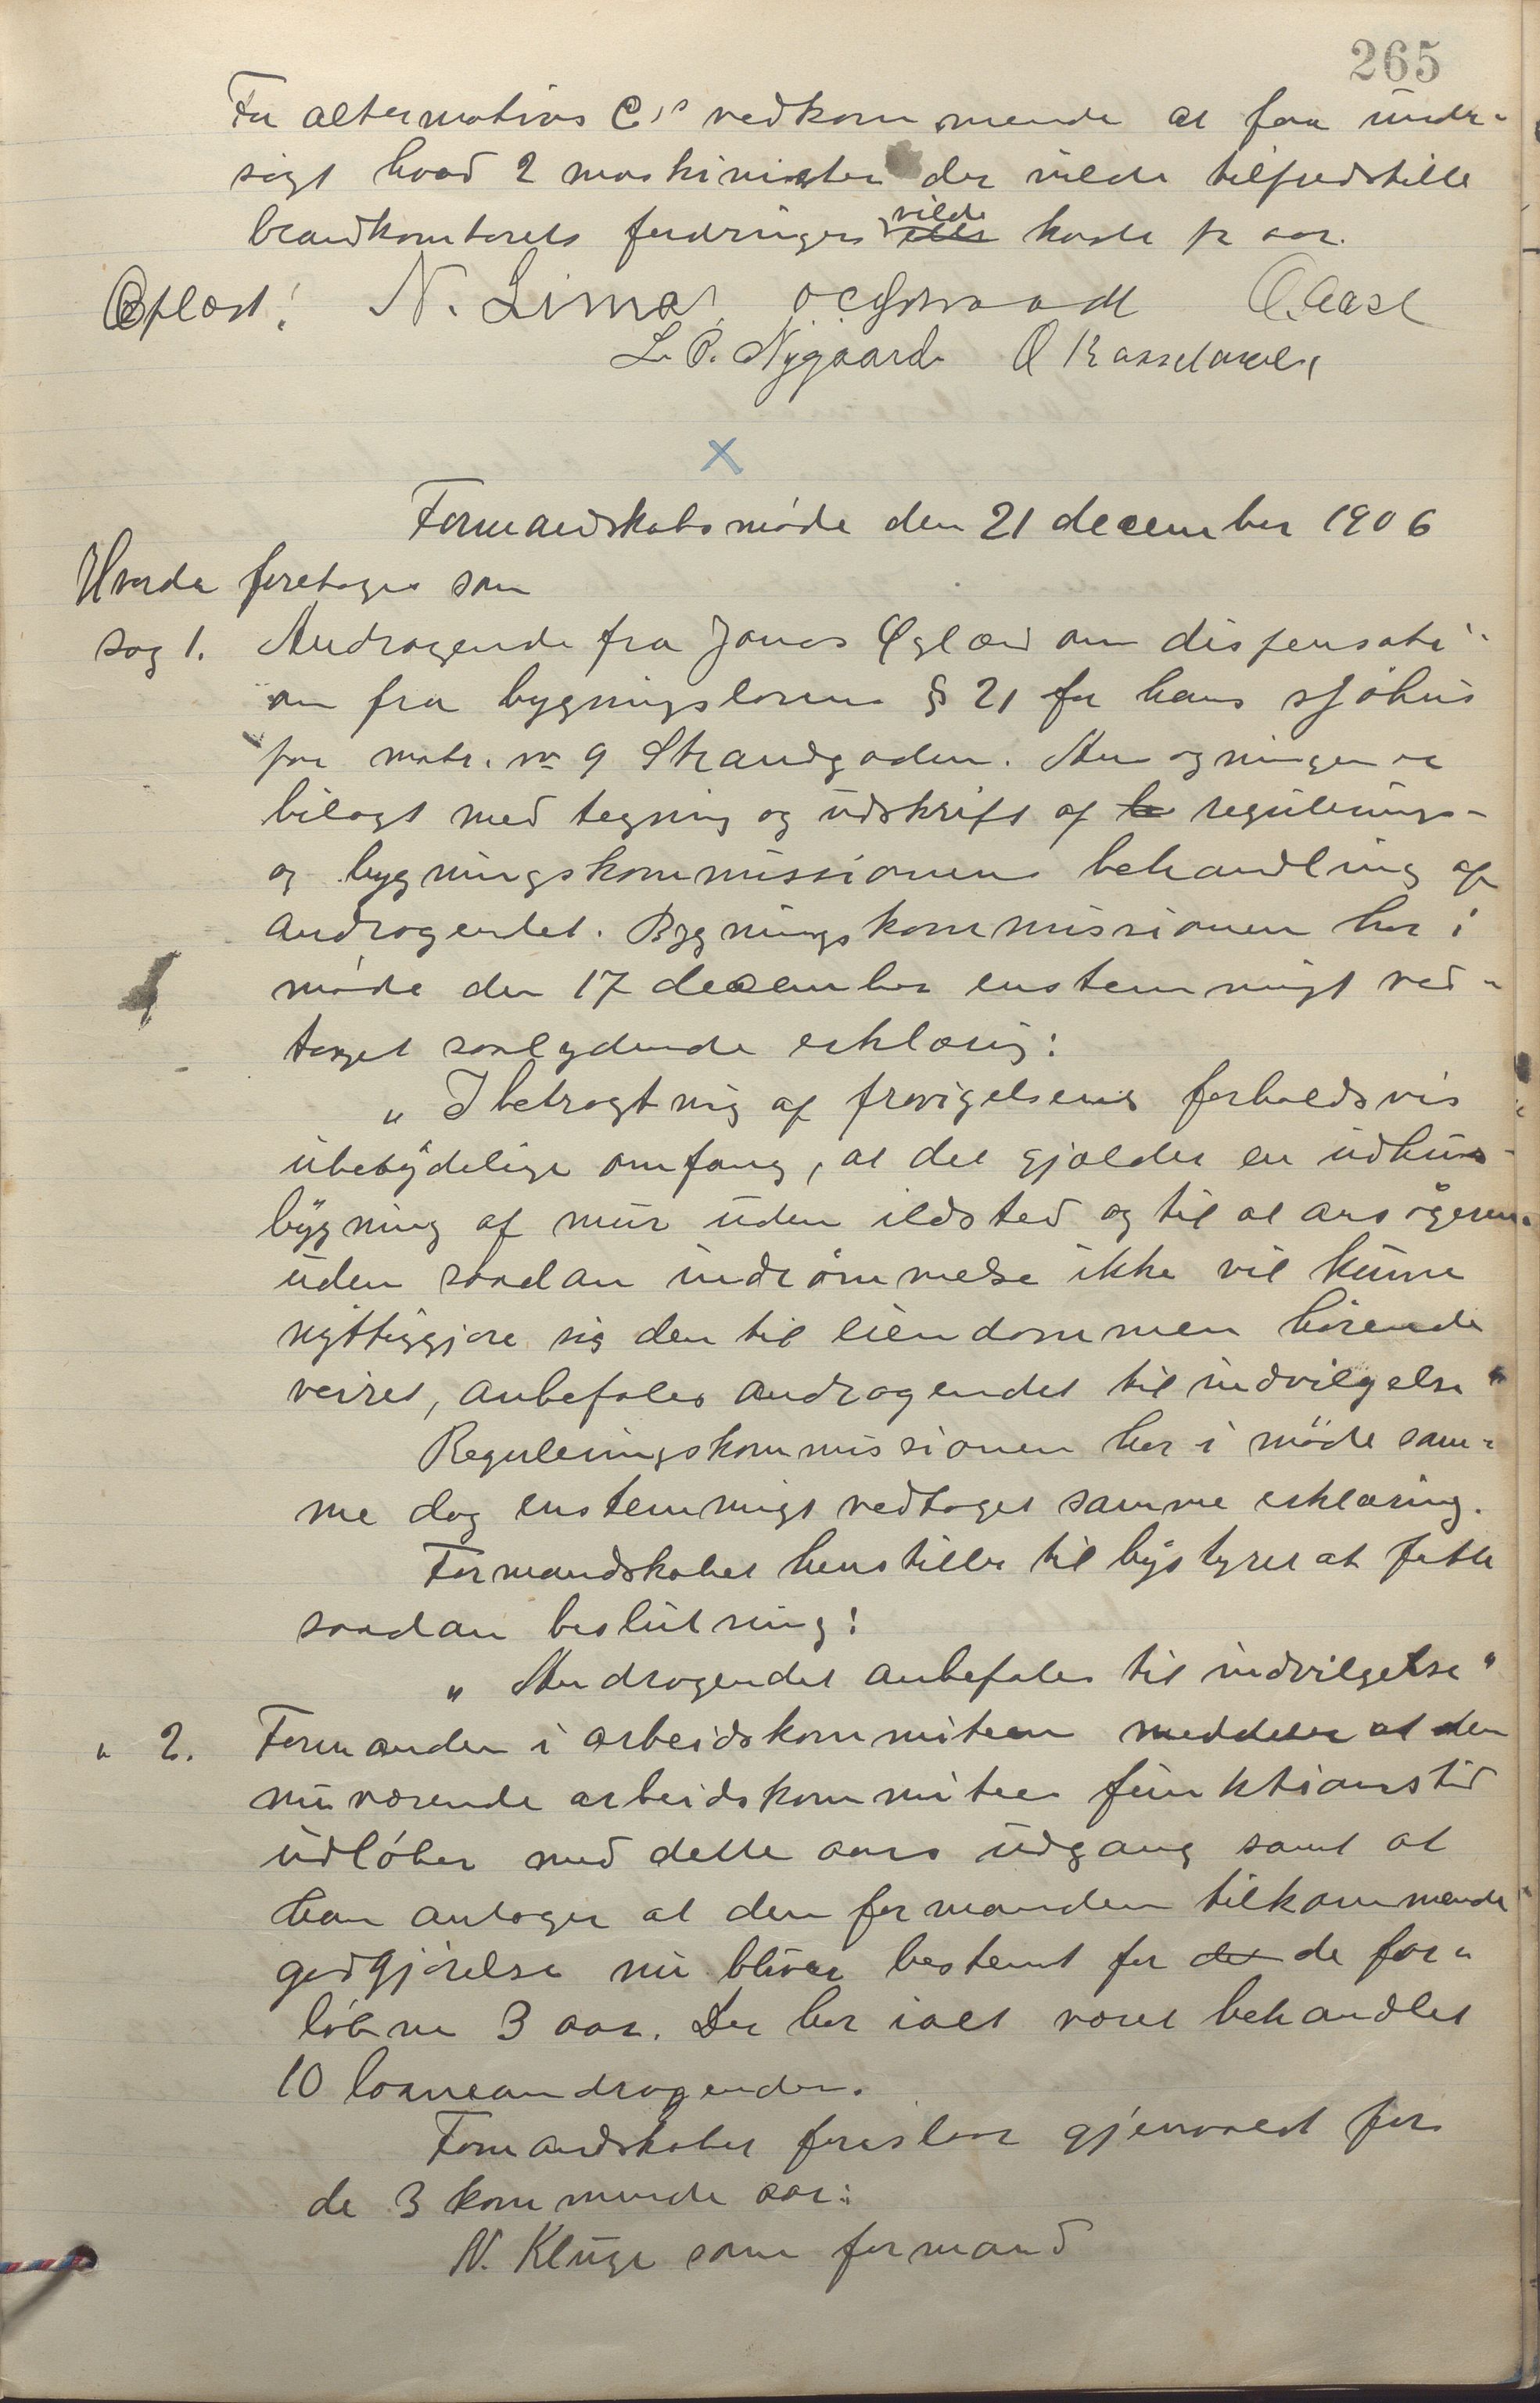 265
For alternativ C's vedkommende at faa under-
søgt hvad 2 maskinister der vilde tilfredstille
brandkontorets fordringer vilde koste pr aar.
Oplæst! N. Lima O Aase
L. P. Nygaard O
Formandskabsmøde den 21 december 1906
Hvorda foretoges som
sag 1. Andragende fra Jonas Øglænd om dispensati-
on fra bygningslovens § 21 for hans sjøhus
paa matr. no 9 Strandgaden. Ansøgningen er
bilagt med tegning og udskrift af regulerings-
og bygningskommissionens behandling af
andragendet. Bygningskommissionen har i
møde den 17 december enstemmigt ved-
taget saalydende erklæring:
"I betragtning af fravigelsens forholdsvis
ubetydelige omfang, at det gjælder en udhus-
bygning af mur uden ildsted og til at ansøgeren
uden saadan indrømmelse ikke vil kunne
nyttiggjøre sig den til eiendommen hørende
veiret, anbefales andragendet til indvilgelse"
Reguleringskommissionen har i møde sam-
me dag enstemmigt vedtaget samme erklæring.
Formandskabet henstiller til bystyret at fatte
saadan beslutning:
"Andragendet anbefales til indvilgelse"
" 2. Formanden i arbeidskommiteen meddeler at den
nuværende arbeidskommitees funktionstid
udløber med dette aars udgang samt at
han antager at den formanden tilkommende
godtgjørelse nu bliver bestemt for det de for-
løbne 3 aar. Der har ialt været behandlet
10 laaneandragender.
Formandskabet foreslaar gjenvalgt for
de 3 kommende aar:
N. Kluge som formand